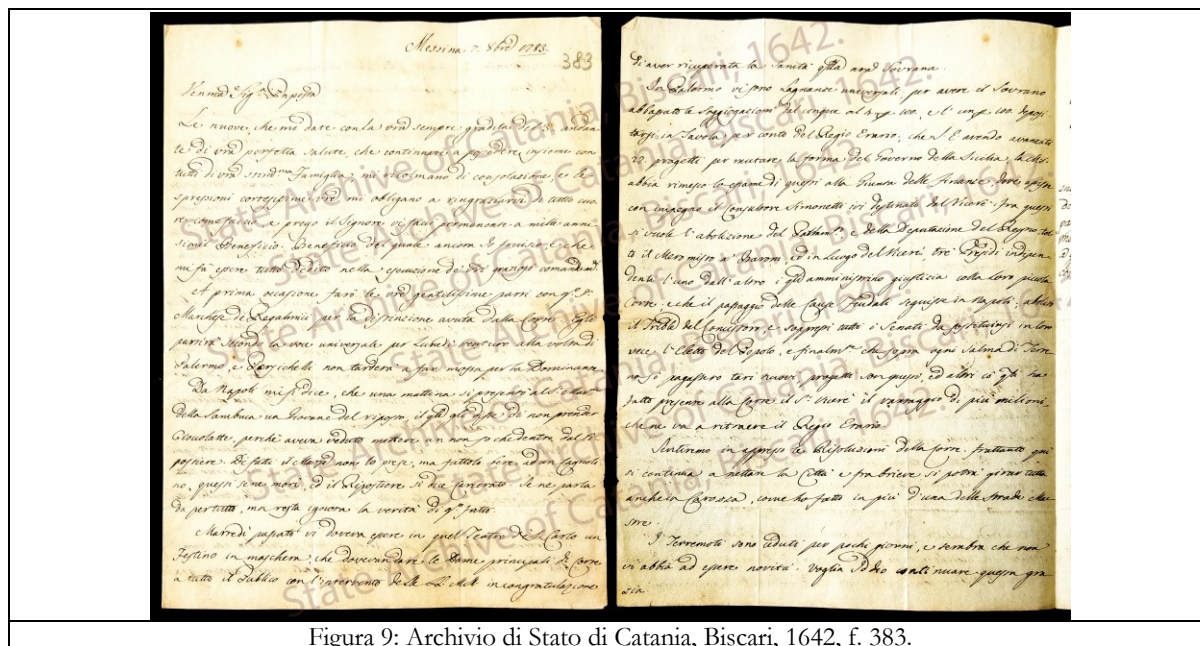 Messina 7. 8bre 1783.
383
Le nuove, che mi date con la vra sempre gradita de 3. andan
te di vra perfetta salute, che continuate a godere insieme con
tutti di vra Famiglia, mi ricolmano di consolazione, e le
spressioni cortesissime mi obligano a ringraziarvi di tutto cuo
re, come faccio, e prego il Signore vi facci permanere a mille anni
simil Beneficio. Beneficio del quale ancora Io fruisco, e che
mi fa essere tutto dedito nella esecuzione de vri comandi
A prima occasione farò le gentilissime parti con
Marchese di Regalmici per la distinzione avuta dalla Corte. Egli
partirà secondo la voce universale per Lunedì venturo alla volta di
Palermo, e non tarderà a far mossa per la Dominante
Da Napoli mi si dice, che una mattina si presentò al
della Sambuca un Giovane del riposto, il gli disse di non prender
Cioccolatte, perchè aveva veduto mettere un non so che dentro dal Ri
postiere. Difatti il non lo prese, ma fattolo bere ad un Cagnoli
no, questi se ne morì, ed il Ripostiere si dice carcerato. Se ne parla
da per tutto, ma resta ignota la verità di
Martedì passato vi doveva essere in quel Teatro di S. Carlo un
Festino in maschera, che dovevan dare le Dame principali di Corte
a tutto il Publico con l'intervento delle LL. MM. in congratulazione
di aver ricuperata la Sanità Sovrana.
In Palermo vi sono Lagnanze universali, per avere il Sovrano
abbassato le Soggiogazioni dal cinque al 4 p. 100, e l'un p. 100 deposi
tarsi in Tavola per conto del Regio Erario, che S. E. avendo avanzati
22. progetti per mutare la forma del Governo della Sicilia, la
abbia rimesso lo esame di questi alla Giunta delle Finanze, dove assiste
con impegno il Consultore Simonetti ivi destinato dal Vicerè. Fra questi
si vuole l'abolizione del e della Deputazione del Regno,
to il Meromisto a' Baroni, ed in luogo del Vicerè tre Presidi indipen
denti l'uno dall'altro, i amministrino giustizia colla loro piccola
Corte, e che il passaggio delle Cause Feudali seguisse in Napoli, abolito
il del Concistoro, e soppressi tutti i Senati da sostituirsi in loro
vece l'Eletto del Popolo, e che sopra ogni Salma di Terre
no si pagassero tarì nuovi progetti son questi, ed altri co' ha
fatto presente alla Corte il Vicerè il vantaggio di più milioni,
che ne va a ritraere il Regio Erario.
Sentiremo in appresso le Risoluzioni della Corte, frattanto qui
si continua a nettar la Città e fra breve si potrà girar tutta
anche in Carozza, come ho fatto in più d'una delle Strade Mae
stre.
I Terremoti sono ceduti per pochi giorni, e sembra che non
vi abbia ad essere novità. Voglia Iddio continuare questa gra
zia.
State Archive of Catania, Biscari, 1642.
Figura 9: Archivio di Stato di Catania, Biscari, 1642, f. 383.